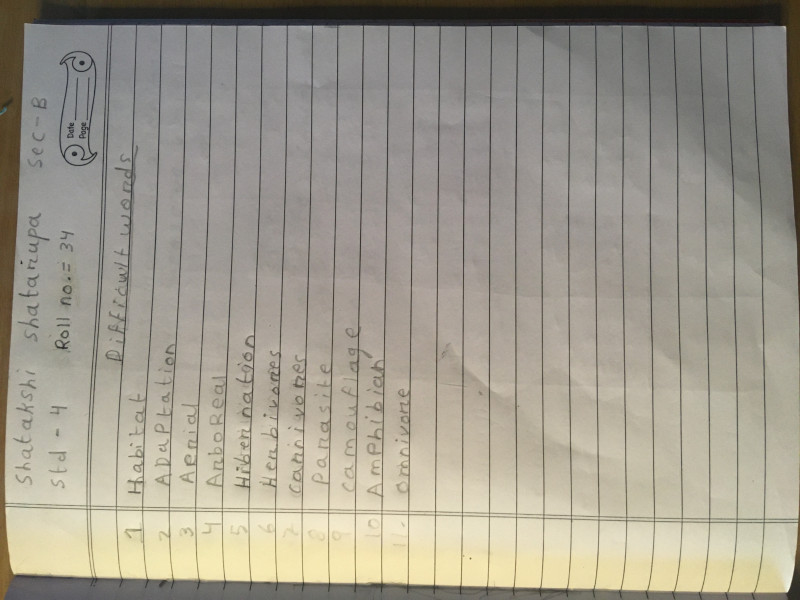 Shatakshi shatarupa sec-B
Std - 4 Roll no.= 34
Date
Page
Difficult words
1 Habitat
2 ADaptation
3 Aerial
4 ArboReal
5 Hibernation
6 Herbivores
7 carnivores
8 Parasite
9 camouflage
10 Amphibian
11. omnivore